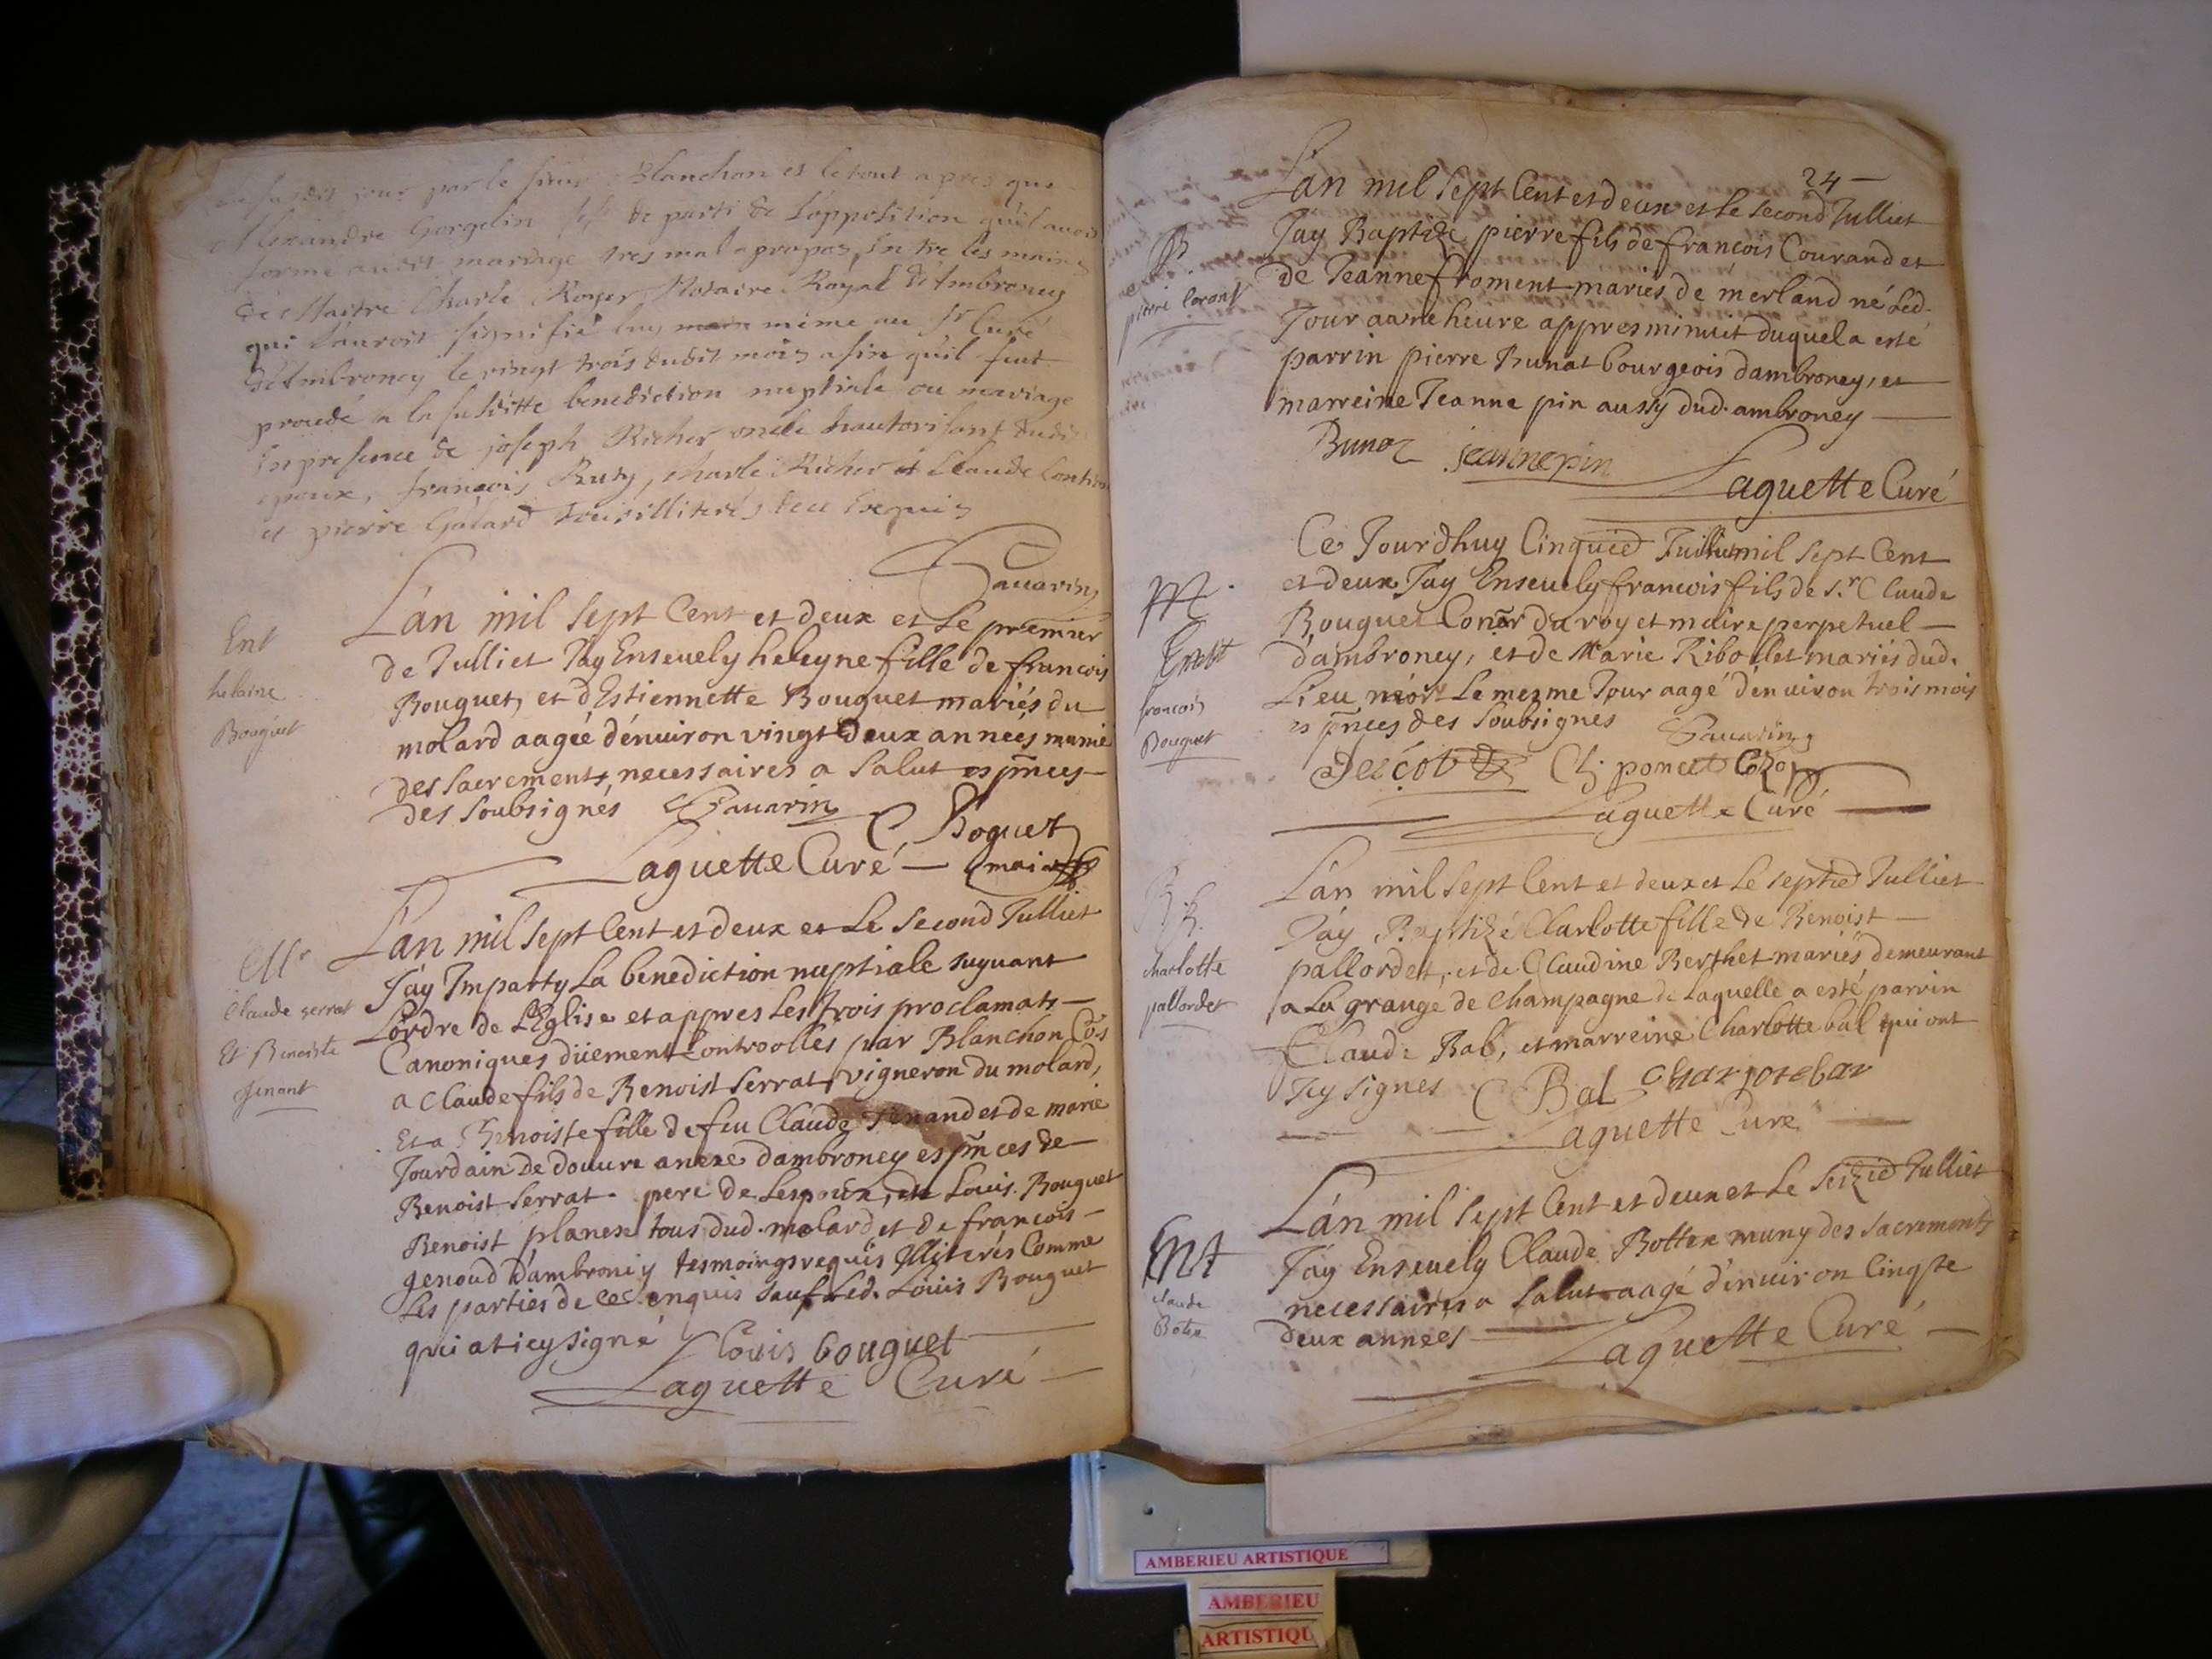 jour par le sieur Blanchon et le tout apres que
Alexandre Gorgelin de parti de l'opposition qu'il avoit
formé audit mariage tres mal a propos, Entre les mains
de Maitre Charle Royer Notaire Royal d'Ambroney
qui l'auroit signifié luy même au Sr Curé
d'Ambroney le vingt trois dudit mois afin qu'il fut
procedé a la susditte benediction nuptiale ou mariage
En presence de joseph Richer oncle hautorisant dudit
epoux, françois Ruzy, charle Richer et Claude
et pierre Galard tous illiterés de ce Enquis
Sauarin
Ent
helaine
Bouguet
L'an mil sept Cent et deux et Le premier
de Julliet J'ay Enseuely heleyne fille de francois
Bouguet, et d'Estiennette Bouguet mariés du
molard aagée d'enuiron vingt deux années, munie
des sacrements necessaires a Salut es pñces
des soubsignés Sauarin
C Boguet
Laguette Curé maire
Mr
Claude serrat
Et Benoiste
Jenant
L'an mil sept Cent et deux et Le second Julliet
J'ay Imparty La benediction nuptiale suyuant
L'ordre de L'Eglise et appres Les trois proclamats
Canoniques düement Controollés par Blanchon
a Claude fils de Benoist Serrat, vigneron du molard,
Et a Benoiste fille de feu Claude Jenand et de marie
Jourdain de douure anexe d'ambroney es pñces de
Benoist Serrat pere de Lespoux, de Louis Bouguet
Benoist planex tous dud. molard et de francois
genoud d'ambroney tesmoings requis Illiterés Comme
Les parties de ce enquis sauf Led. Louis Bouguet
qui at icy signé Louis bouguet
Laguette Curé
24
B
L'an mil sept Cent et deux et Le second Julliet
J'ay Baptizé pierre fils de francois Courand et
de Jeanne froment mariés de merland né Led.
Jour a une heure appres minuit duquel a esté
parrin pierre Bunat bourgeois d'ambroney, et
marreine Jeanne pin aussy dud. ambroney
Bunat jeanne pin
Laguette Curé
M
francois
Bouguet
Ce Jourdhuy Cinquie Juillet mil sept Cent
et deux J'ay Enseuely francois fils de Sr Claude
Bouguet Coner du roy et maire perpetuel
d'ambroney, et de Marie Ribollet mariés dud.
Lieu, mort Le mesme Jour aagé d'enuiron trois mois
es pñces des soubsignés Sauarin
Laguette Curé
B.
charlotte
pallordet
L'an mil sept Cent et deux et Le septie Julliet
J'ay Baptizé Charlotte fille de Benoist
pallordet, et de Claudine Berthet mariés demeurant
a La grange de Champagne de Laquelle a esté parrin
Claude Bal, et marreine Charlotte bal qui ont
Icy signes C Bal
Laguette Curé
Ent
Claude
L'an mil sept Cent et deux et Le seizie Julliet
J'ay Enseuely Claude Bottex muny des sacrements
necessaires a Salut aagé d'enuiron Cinqte
deux années
Laguette Curé
AMBERIEU ARTISTIQUE
AMBERIEU
ARTISTIQU